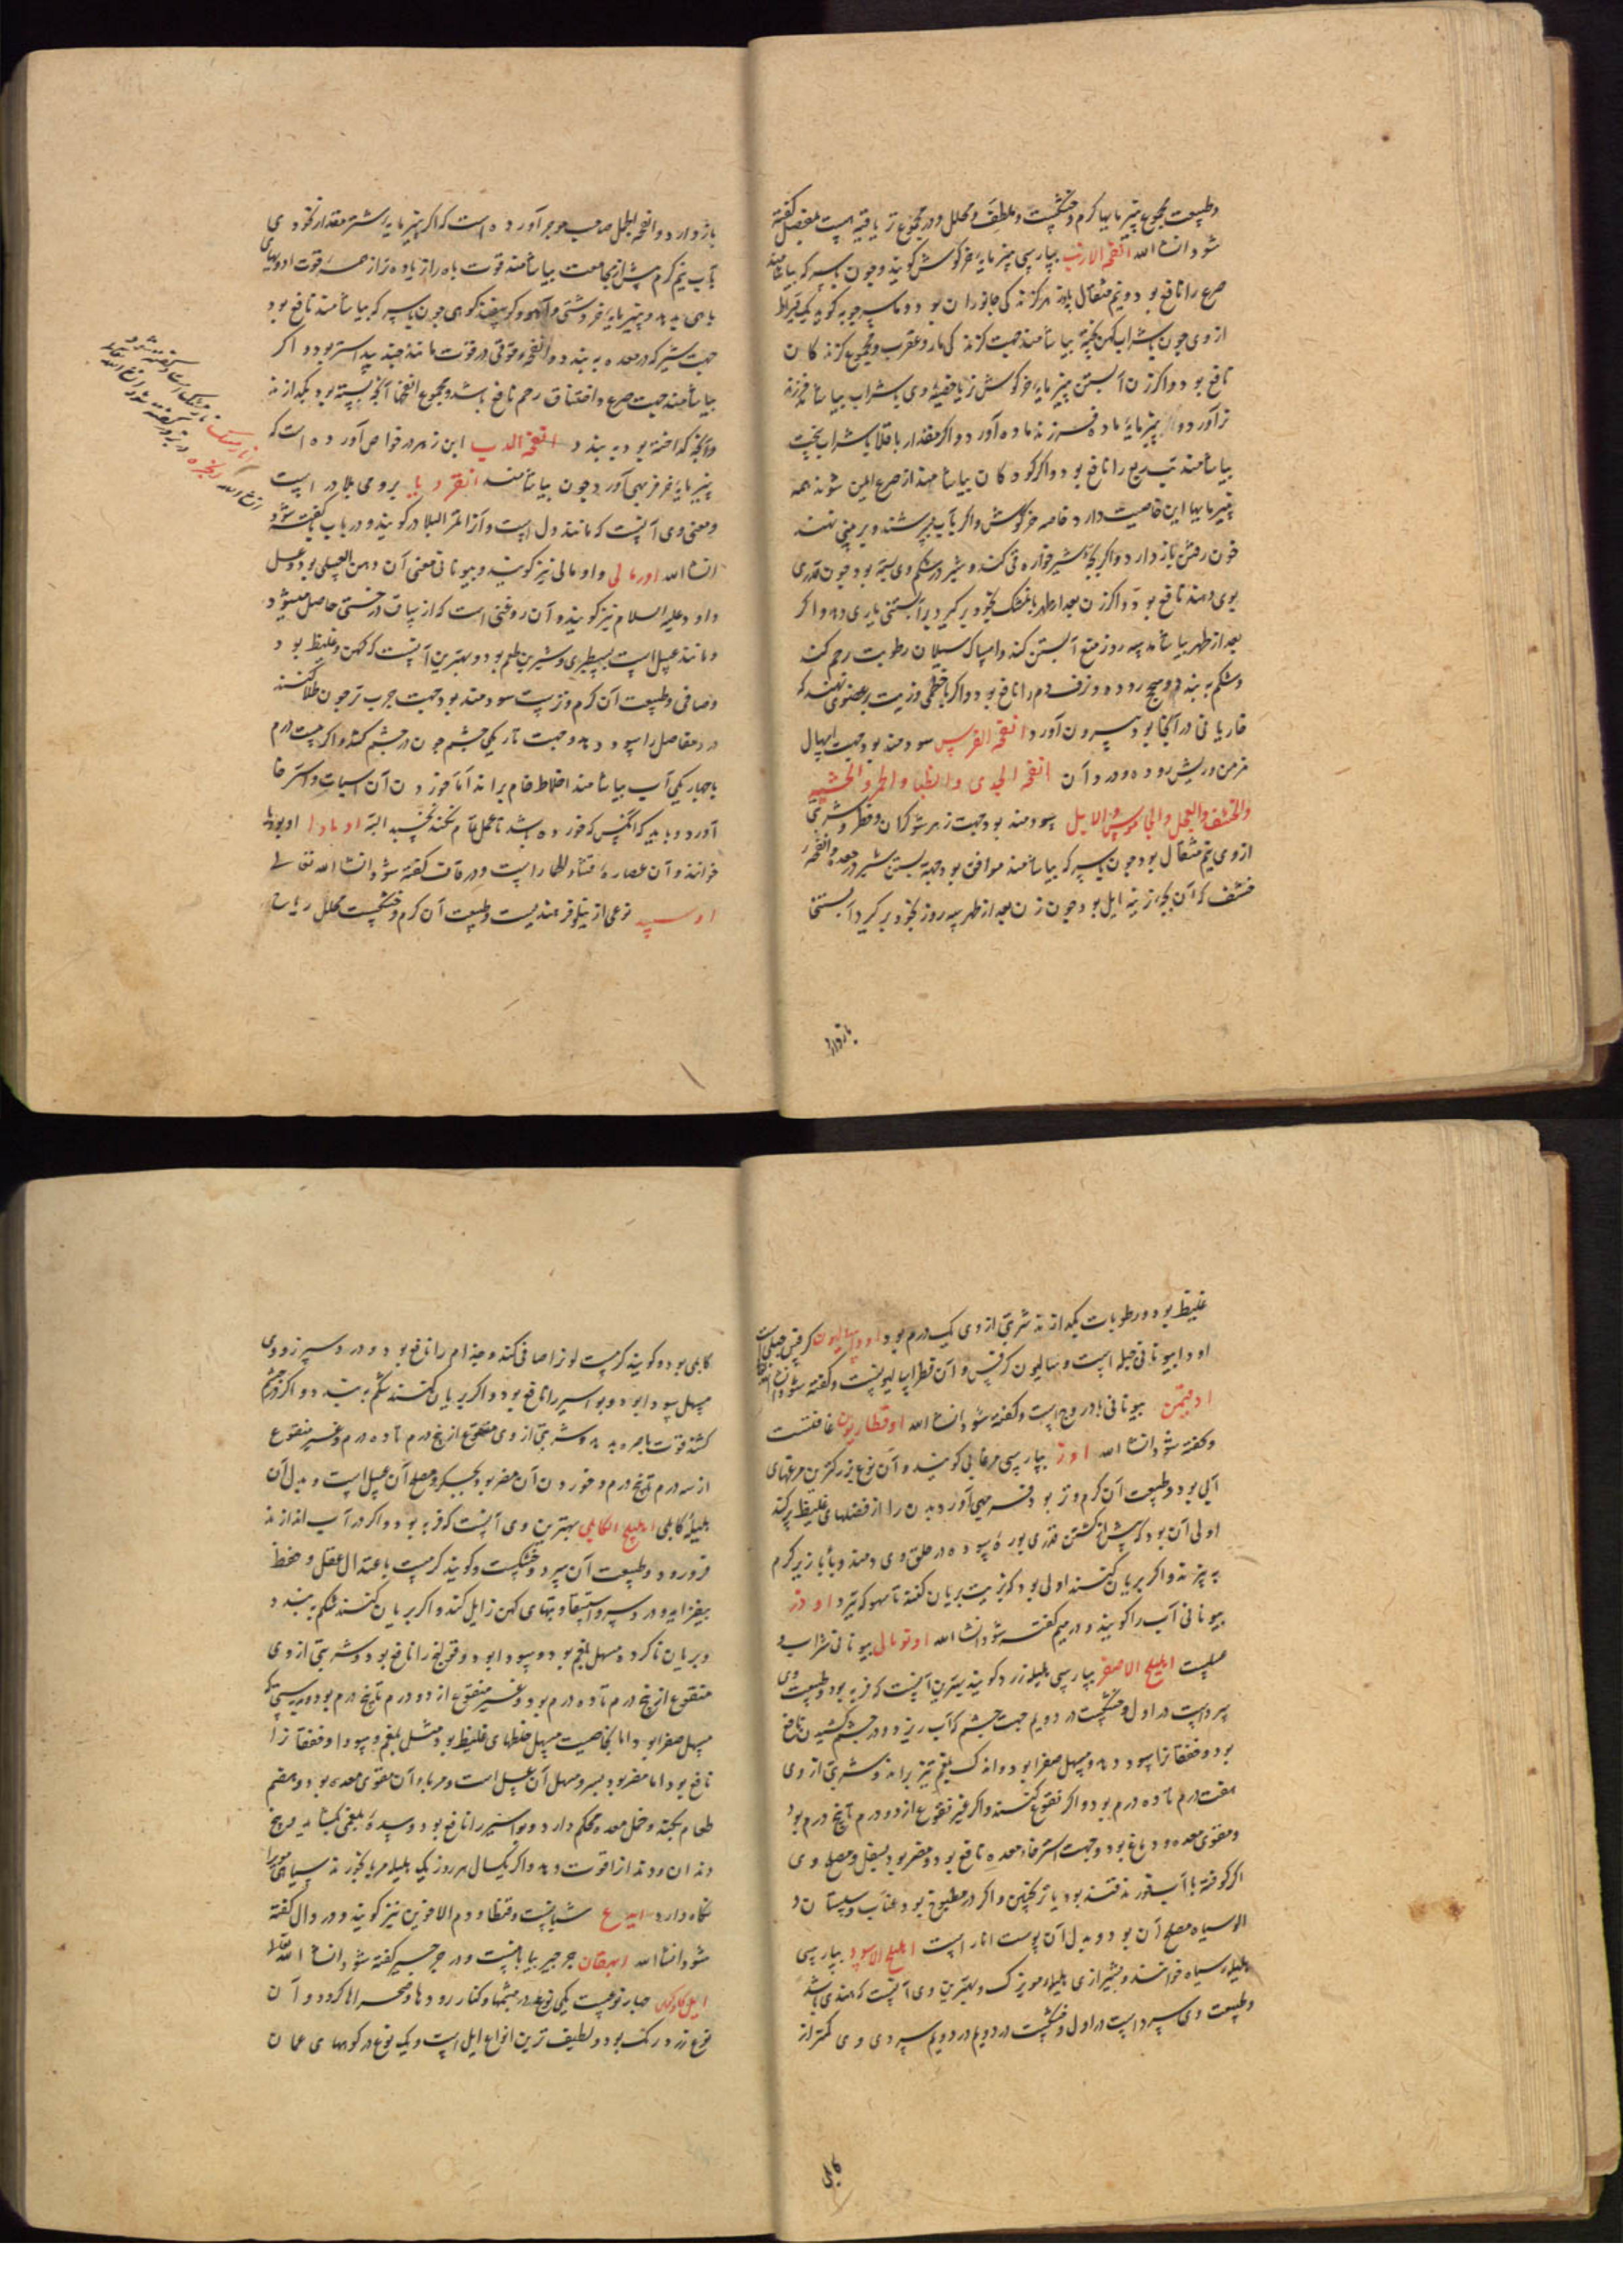 وطبیعت مجموع پنیر مایها کرم و خشکست و ملطف و محلل و در مجموع تریاقیه هست بفصل گفته
شود انشاء الله انفحة الارنب بپارسی پنیر مایه خرکوش کویند و چون با سرکه بیاشامند
صرع را نافع بود و نیم مثقال پادزهر کزند کی جانوران بود و ماسرجویه کوید یک قیراط
از وی چون با شراب کهن پخته بیاشامند جهت کزند کی مار و عقرب و مجموع کزند کان
نافع بود و اکر زن آبستن پنیر مایه خرکوش نر یا خصیه وی با شراب بیاشامد فرزند
نر آورد و از پنیر مایه ماده فرزند ماده آورد و اکر مقدار باقلا با شراب بپخت
بیاشامند تب ربع را نافع بود و اکر کودکان بیاشامند از صرع ایمن شوند همه
پنیر مایها این خاصیت دارد خاصه خرکوش و اکر بآب بسرشند و بر بینی نهند
خون رفتن باز دارد و اکر بچه شیرخواره قی کند و شیر در شکم وی بسته بود چون قدری
بوی دهند نافع بود و اکر زن بعد از طهر با مشک بخود برکیرد بر آبستنی یاری دهد و اکر
بعد از طهر بیاشامد سه روز منع آبستن کند و امساک سیلان رطوبت رحم کند
و شکم ببندد و سحج روده و نزف دم را نافع بود و اکر با خطمی و زیت بر عضوی نهند که
خار یا نی در آنجا بود بیرون آورد انفحة الفرس سودمند بود جهت اسهال
مزمن و ریش روده و درد آن انفحة الجدی والظبا والحمر والخشیه
والخشف والعجل والجاموس والایل سودمند بود جهت زهر شوکران و فطر و شربتی
از وی نیم مثقال بود چون با سرکه بیاشامند موافق بود جهة بستن شیر در معده و انفحه
خشف که آن بچه زینه ایل بود چون زن بعد از طهر سه روز بخود برکیرد آبستنی
بازدارد
باز دارد و انفحة الجمل صاحب موجز آورده است که اکر پنیر مایه اشتر مقدار نخودی
بآب نیم کرم پیش از مجامعت بیاشامند قوت باه را زیاده
باهی بدهد و پنیر مایه خر وحشی و آهو و کوسفند کوهی چون با سرکه بیاشامند نافع بود
جهت شیر که در معده ببندد و انفحه قوقی در قوت مانند جند بیدستر بود و اکر
بیاشامند جهت صرع و اختناق رحم نافع باشد و مجموع انفحها آنچه بسته بود بکدازند
و آنچه کداخته بود ببندد انفحة الدب ابن زهر در خواص آورده است که
پنیر مایه خرس فربهی آورد چون بیاشامند انقردیا برومی بلادر است
و معنی وی آنست که مانند دل است و آنرا ثمر البلادر کویند و در باب با گفته شود
انشاء الله اورمالی و اومالی نیز کویند و بیونانی معنی آن دهن العسلی بود و عسل
داود علیه السلام نیز کویند و آن روغنی است که از ساق درختی حاصل میشود
و مانند عسل است بسطبری و شیرین طعم بود و بهترین آنست که کهن و غلیظ بود
و صافی و طبیعت آن کرم و تر است سودمند بود جهت جرب تر چون طلا کنند
درد مفاصل را سود دهد و جهت تاریکی چشم چون در چشم کشند و اکر بیست درم
با چهار یکی آب بیاشامند اخلاط خام براند اما خوردن آن سبات و استرخا
آورد و باید که آنکس که خورده باشد تا عمل تمام نکند نخسپد البته اومادا
خوانند و آن عصاره قثاء الحمار است و در قاف کفته شود انشاء الله تعالی
اوسبید نوعی از نیلوفر هندیست و طبیعت آن کرم و خشکست محلل ریاح
انار مشک نارمشکست
در نون گفته شود انشاء الله تعالی
انجره
غلیظ بود و رطوبات بکدازند شربتی از وی یک درم بود اوراسالیون کرفس جبلیست
اورا بیونانی جبل است و سالیون کرفس و آن فطراسالیونست و کفته شود انشاء الله تعالی
اوقیمن بیونانی بادروج است و کفته شود انشاء الله اوفطاریون غافتست
و کفته شود انشاء الله اوز بپارسی مرغابی کویند و آن نوع بزرکترین مرغهای
آبی بود و طبیعت آن کرم و تر بود فربهی آورد بدن را از فضلهای غلیظ پر کند
اولی آن بود که پیش از کشتن قدری بوره سوده در حلق وی دمند و بابازیر کرم
بپزند و اکر بریان کنند اولی بود که بزیت بریان کنند تا سهوکه ببرد اودر
بیونانی آب را کویند و در میم کفته شود انشاء الله اونومالی بیونانی شراب و
عسلست اهلیلج الاصفر بپارسی هلیله زرد کویند بهترین آنست که فربه بود و طبیعت وی
سرد است در اول و خشکست در دویم جهت چشم که آب ریزد و در چشم کشیدن نافع
بود و خفقانرا سود دهد و مسهل صفرا بود و اندک بلغم نیز براند و شربتی از وی
هفت درم تا ده درم بود و اکر نقوع کنند و اکر غیر نقوع از دو درم تا پنج درم بود
و مقوی معده و دماغ بود و جهت استرخاء معده نافع بود و مضر بود بسفل و مصلح وی
اکر کوفته با آب قند بود یا ترنجبین و اکر در مطبوخ بود عناب و سپستان و
الو سیاه مصلح آن بود و بدل آن پوست انار است اهلیلج الاسود بپارسی
هلیله سیاه خوانند و بشیرازی هلیله مویزک و بهترین وی آنست که هندی باشد
و طبیعت وی سرد است در اول و خشکست در دویم در دویم سردی وی کمتر از
کابلی
کابلی بود و کویند کرمست لونرا صافی کند و جذام را نافع بود و درد سپرز و وی
مسهل سودا بود و بواسیر را نافع بود و اکر بریان کنند شکم ببندد و اکر در چشم
کشند قوت باصره بدهد و شربتی از وی منقوع از پنج درم تا ده درم و غیر منقوع
از سه درم تا پنج درم و خوردن آن مضر بود بجگر و مصلح آن عسل است و بدل آن
هلیله کابلی اهلیلج الکابلی بهترین وی آنست که فربه بود و اکر در آب اندازند
فرو رود و طبیعت آن سرد و خشکست و کویند کرمست باعتدال عقل و حفظ
بیفزاید و درد سر و استسقا و تبهای کهن زایل کند و اکر بریان کنند شکم ببندد
و بریان ناکرده مسهل بلغم بود و سودا بود و قولنج را نافع بود و شربتی از وی
منقوع از پنج درم تا ده درم بود و غیر منقوع از دو درم تا پنج درم بود
مسهل صفرا بود اما بخاصیت مسهل خلطهای غلیظ بود مثل بلغم و سودا و خفقانرا
نافع بود اما مضر بود بسر و مسهل آن عسل است و مرباء آن مقوی معده بود و هضم
طعام بکند و خمل معده محکم دارد و بواسیر را نافع بود و سده بلغمی بکشاید و بیخ
دندان و دندانرا قوت دهد و اکر یکسال هر روز یک هلیله مربا بخورند سیاهی مو را
نکاه دارد ایدع شیانست و قنطا و دم الاخوین نیز کویند و در دال گفته
شود انشاء الله ایهقان جرجیر بیابانیست و در جرجیر کفته شود انشاء الله تعالی
ایل کاوکوهی چهار نوعست یکی نوع در بیشها و کنار رودها و صحراها کردد و آن
نوع زرد رنک بود و لطیف ترین انواع ایل است و یک نوع در کوههای عمان